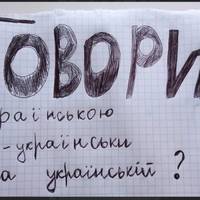 ГОВОРИ
раїнською
-українськи
а українській ?